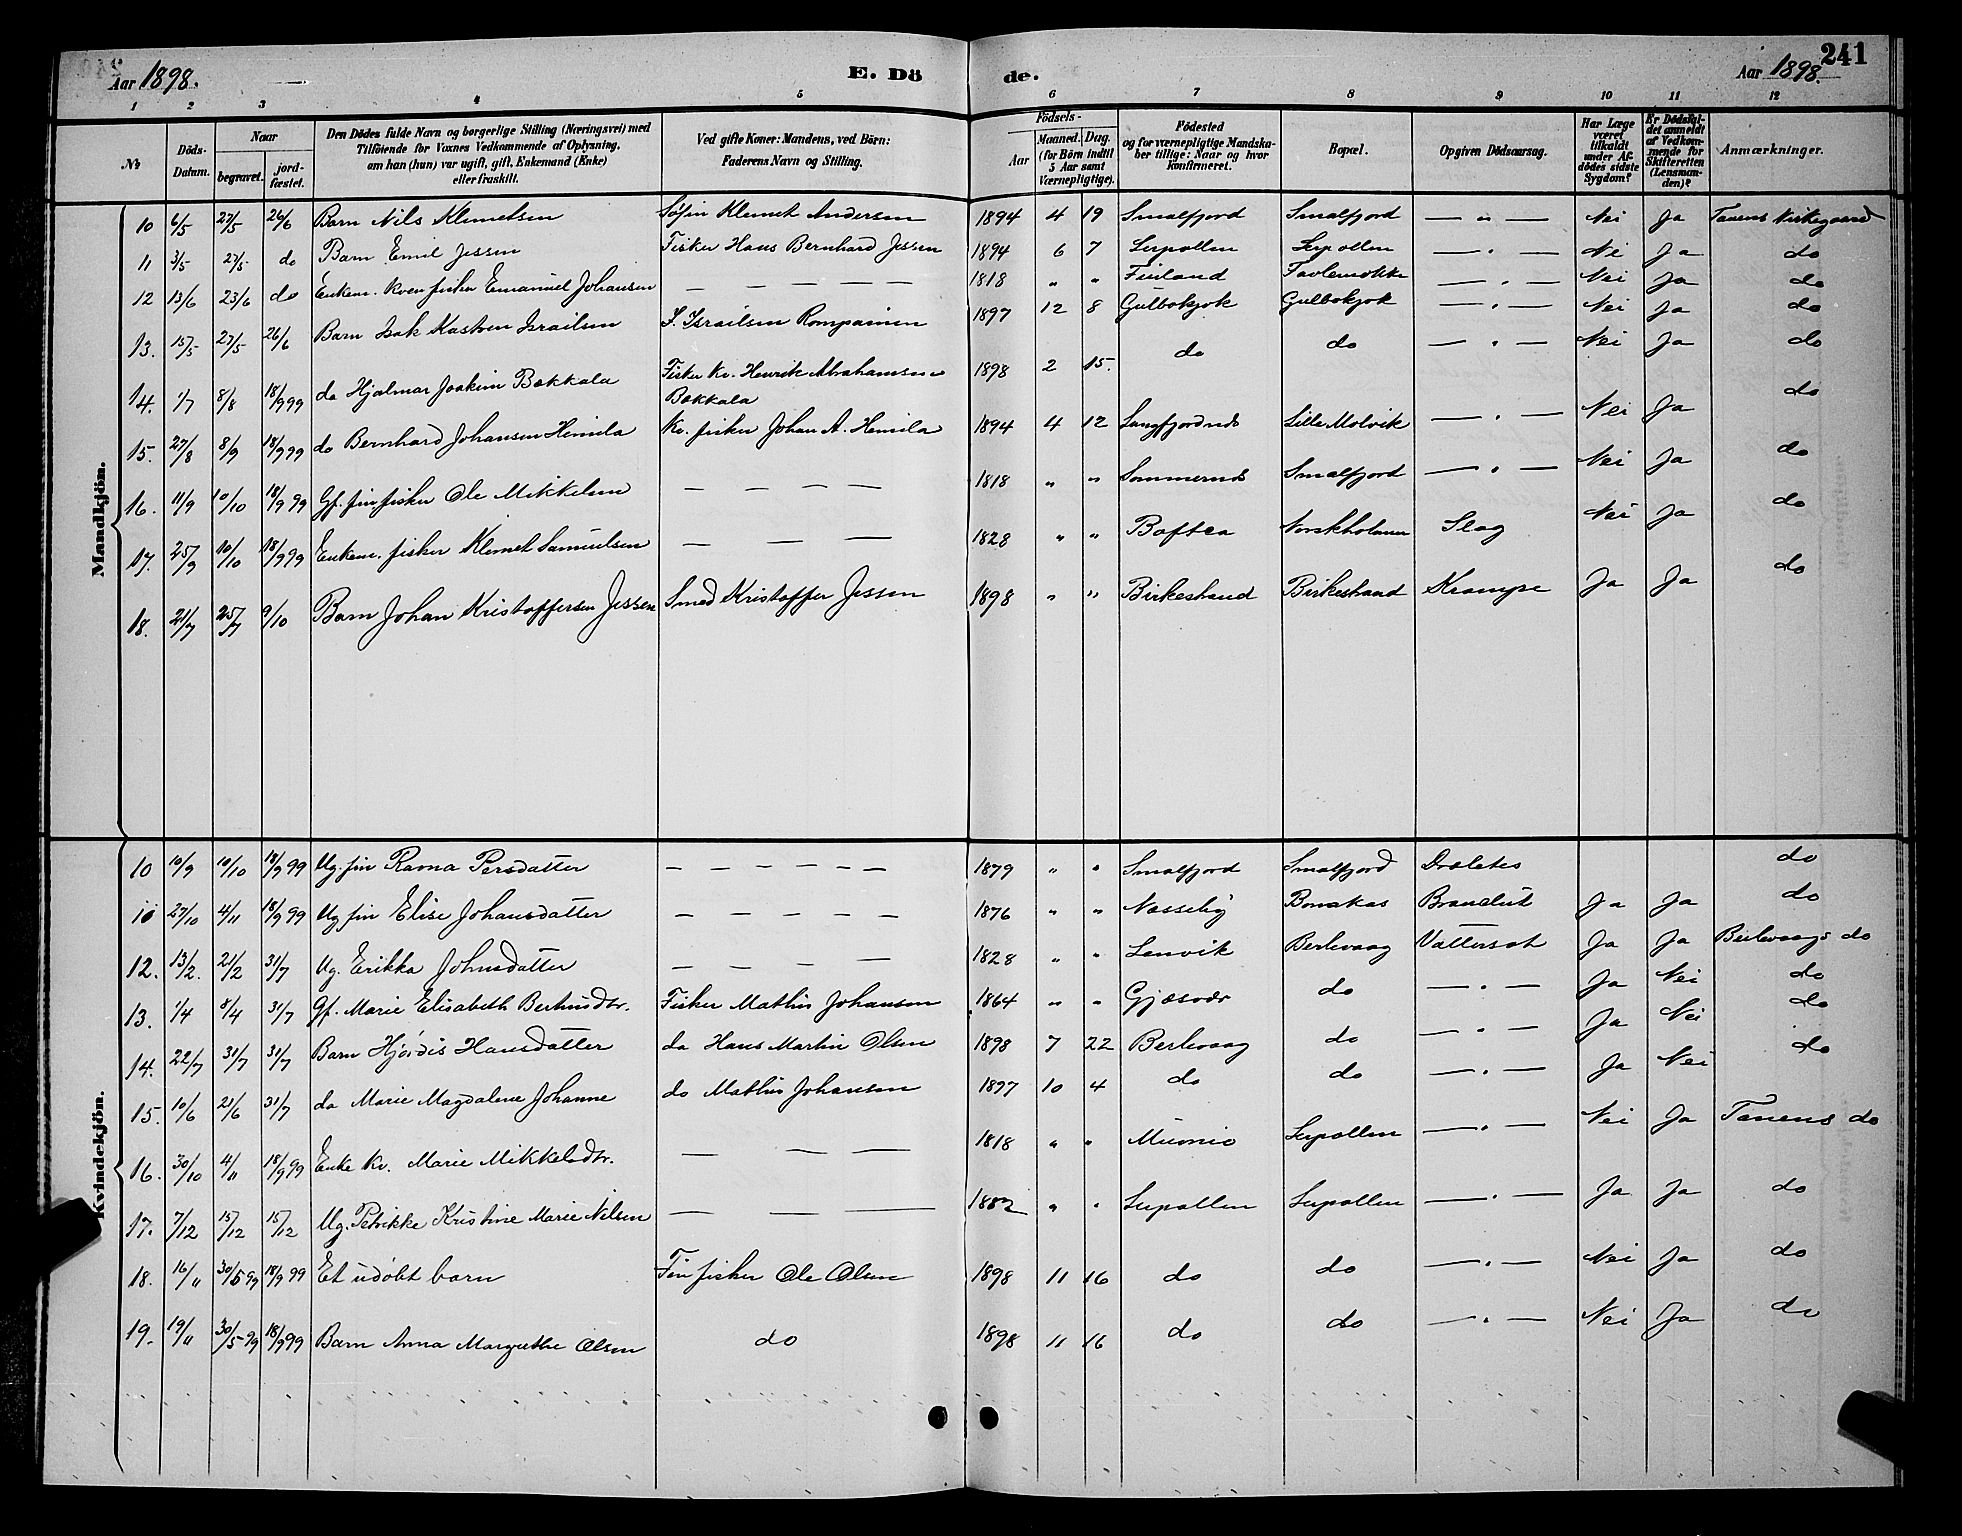 241
Aar 1898. E. Dö de. Aar 1898.
1 2 3 4 5 6 7 8 9 10 11 12
№ Döds-Datum. Naar begravet. jord-fæstet. Den Dödes fulde Navn og borgerlige Stilling (Næringsvei) med Tilföiende for Voxnes Vedkommende af Oplysning, om han (hun) var ugift, gift, Enkemand (Enke) eller fraskilt. Ved gifte Koner: Mandens, ved Börn: Faderens Navn og Stilling. Födsels- Aar Maaned. Dag. (for Börn indtil 5 Aar samt Værnepligtige). Födested og for værnepligtige Mandskaber tillige: Naar og hvor konfirmeret. Bopæl. Opgiven Dödsaarsag. Har Læge været tilkaldt under Afdödes sidste Sygdom? Er Dödsfaldet anmeldt af Vedkommende for Skifteretten (Lensmanden)? Anmærkninger.
Mandkjön.
10 6/5 27/5 26/6 Barn Nils Klemetsen Söfin Klemet Andersen 1894 4 19 Smalfjord Smalfjord — " — Nei Ja Tanens Kirkegaard
11 3/5 27/5 do Barn Emil Jessen Fisker Hans Bernhard Jessen 1894 6 7 Lerpollen Lerpollen — " — Nei Ja do
12 13/6 23/6 do Enkem. Kven fisker Emanuel Johansen — — — — 1818 " " Finland — " — Nei Ja do
13. 15/5 27/5 26/6 Barn Isak Kastren Israilsen I. Israilsen Rompainen 1897 12 8 Gulbokjok Gulbokjok — " — Nei Ja do
14. 1/7 8/8 18/9 99 do Hjalmar Joakim Bækkala Fisker Kv. Henrik Abrahamsen Bækkala 1898 2 15. do do — " — Nei Ja do
15. 27/8 8/9 18/9 99 do Bernhard Johansen Hemila Kv. fisker Johan A. Hemila 1894 4 12 Langfjordnes Lille Molvik — " — Nei Ja do
16. 11/9 10/10 18/9 99 Gf. fin fisker Ole Mikkelsen — — — — 1818 " " Sommernes Smalfjord — " — Nei Ja do
17. 25/9 10/10 18/9 99 Enkem. fisker Klemet Samuelsen — — — 1828 " " Boftsa Norskholmen Slag Nei Ja do
18. 21/7 25/7 9/10 Barn Johan Kristoffersen Jessen Smed Kristoffer Jessen 1898 " " Birkestrand Birkestrand Krampe Ja Ja do
Kvindekjön.
10 10/9 10/10 18/9 99 Ug. fin Ravna Persdatter — — — — — 1879 " " Smalfjord Smalfjord do
11 27/10 4/11 18/9 99 Ug fin Elise Johansdatter — — — — — 1876 " " Næsseby Bonakas Ja Ja do
12. 13/2. 21/2 31/7 Ug. Erikka Johnsdatter — — — — 1828 " " Lenvik Berlevaag Vattersot Ja Ja Berlevaags do
13. 1/4 8/4 31/7 Gf. Marie Elisabeth Fisker Mathis Johansen 1864 " " Gjæsvær do — " — Ja Nei do
14. 22/7 31/7 31/7 Barn Hjördis Hansdatter do Hans Martin Olsen 1898 7 22 Berlevaag do — " — Ja Nei do
15. 10/6 21/6 31/7 do Marie Magdalene Johanne do Mathis Johansen 1897 10 4 do do — " — Ja Nei do
16. 30/10 4/11 18/9 99 Enke Kv. Marie Mikkelsdtr. — — — 1818 " " Muonio Lerpollen — " — Nei Ja Tanens do
17. 7/12 15/12 15/12 Ug. Petrikke Kristine Marie Nilsen — — — 1882 " " Lerpollen Lerpollen — " — Ja Ja do
18. 16/11 30/5 99 18/9 99 Et udöbt barn Fin fisker Ole Olsen 1898 11 16 do do — " — Nei Ja do
19. 19/11 30/5 99 18/9 99 Barn Anna Margrethe Olsen do 1898 11 16 do do — " — Nei Ja do